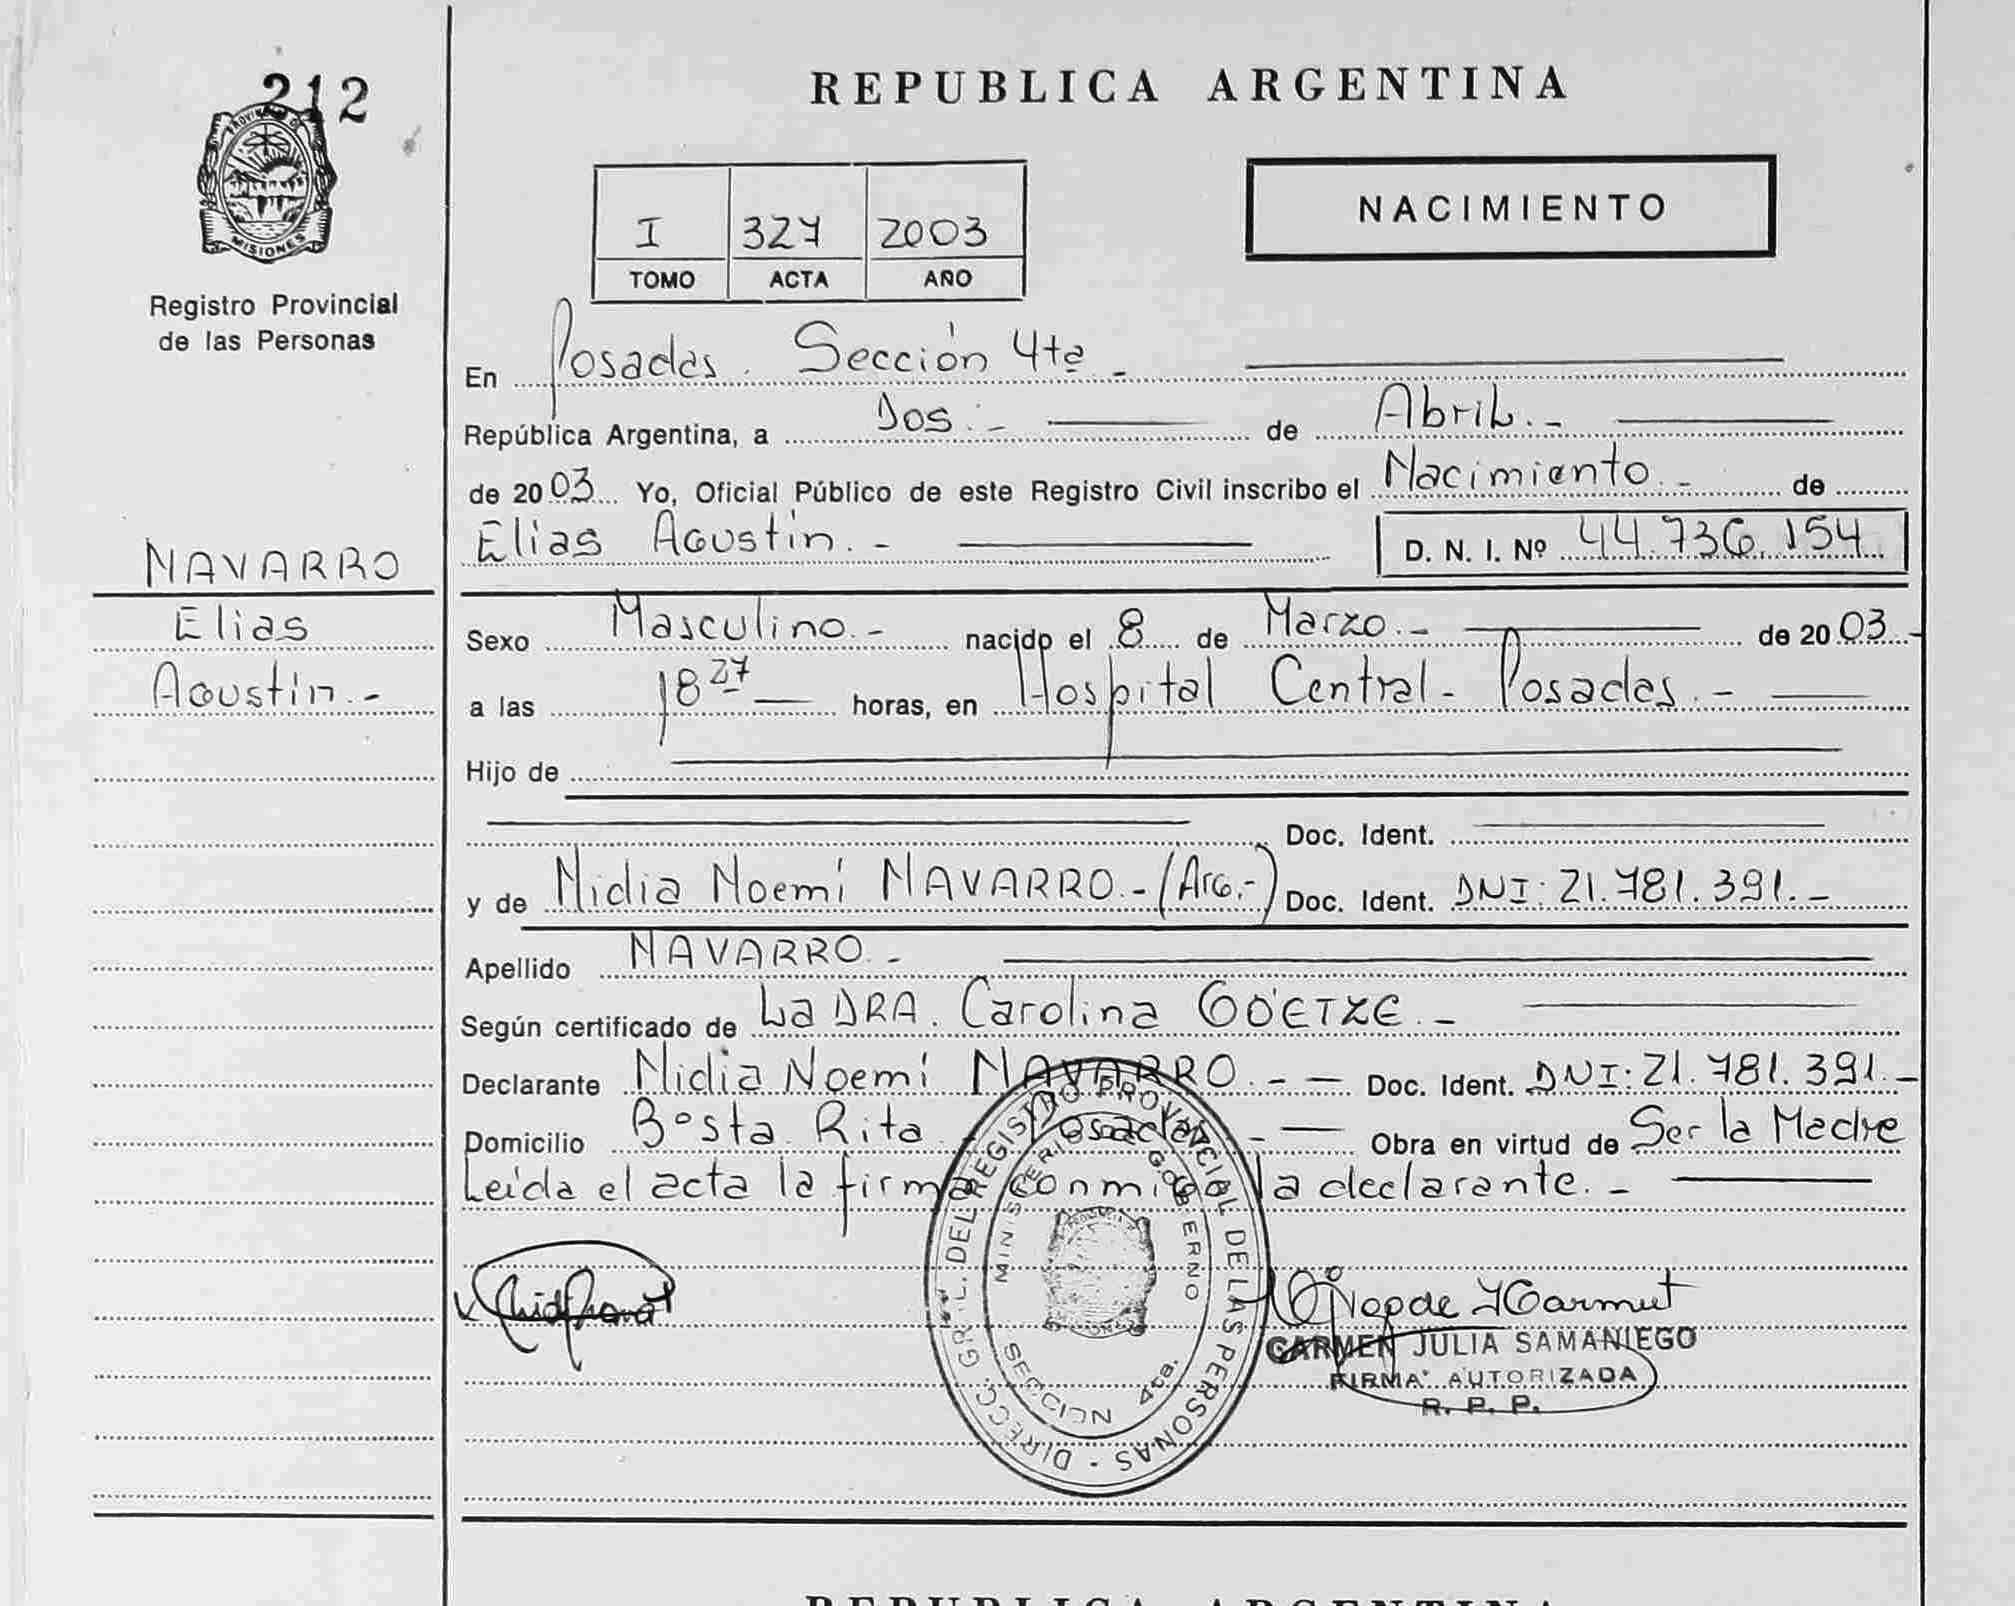 212
PROVINCIA DE
MISIONES
Registro Provincial
de las Personas
NAVARRO
Elias
Agustín.-
REPUBLICA ARGENTINA
NACIMIENTO
I 327 2003
TOMO ACTA AÑO
En Posadas. Sección 4ta -
República Argentina, a Dos.- de Abril.-
de 2003 Yo, Oficial Público de este Registro Civil inscribo el Nacimiento.- de
Elias Agustín.- D. N. I. Nº 44.736.154
Sexo Masculino.- nacido el 8 de Marzo.- de 2003.-
a las 18 27 horas, en Hospital Central- Posadas.-
Hijo de
Doc. Ident.
y de Nidia Noemí NAVARRO.-(Arg.-) Doc. Ident. DNI: 21.781.391.-
Apellido NAVARRO.-
Según certificado de La DRA. Carolina GÖETZE.-
Declarante Nidia Noemí NAVARRO.- - Doc. Ident. DNI: 21.781.391.-
Domicilio Bº Sta. Rita Posadas.- Obra en virtud de Ser la Madre
Leída el acta la firma conmigo la declarante.-
DIRECC. GRAL. DEL REGISTRO PROVINCIAL DE LAS PERSONAS -
MINISTERIO GOBIERNO
SECCION 4ta.
CARMEN JULIA SAMANIEGO
FIRMA AUTORIZADA
R. P. P.
REPUBLICA ARGENTINA